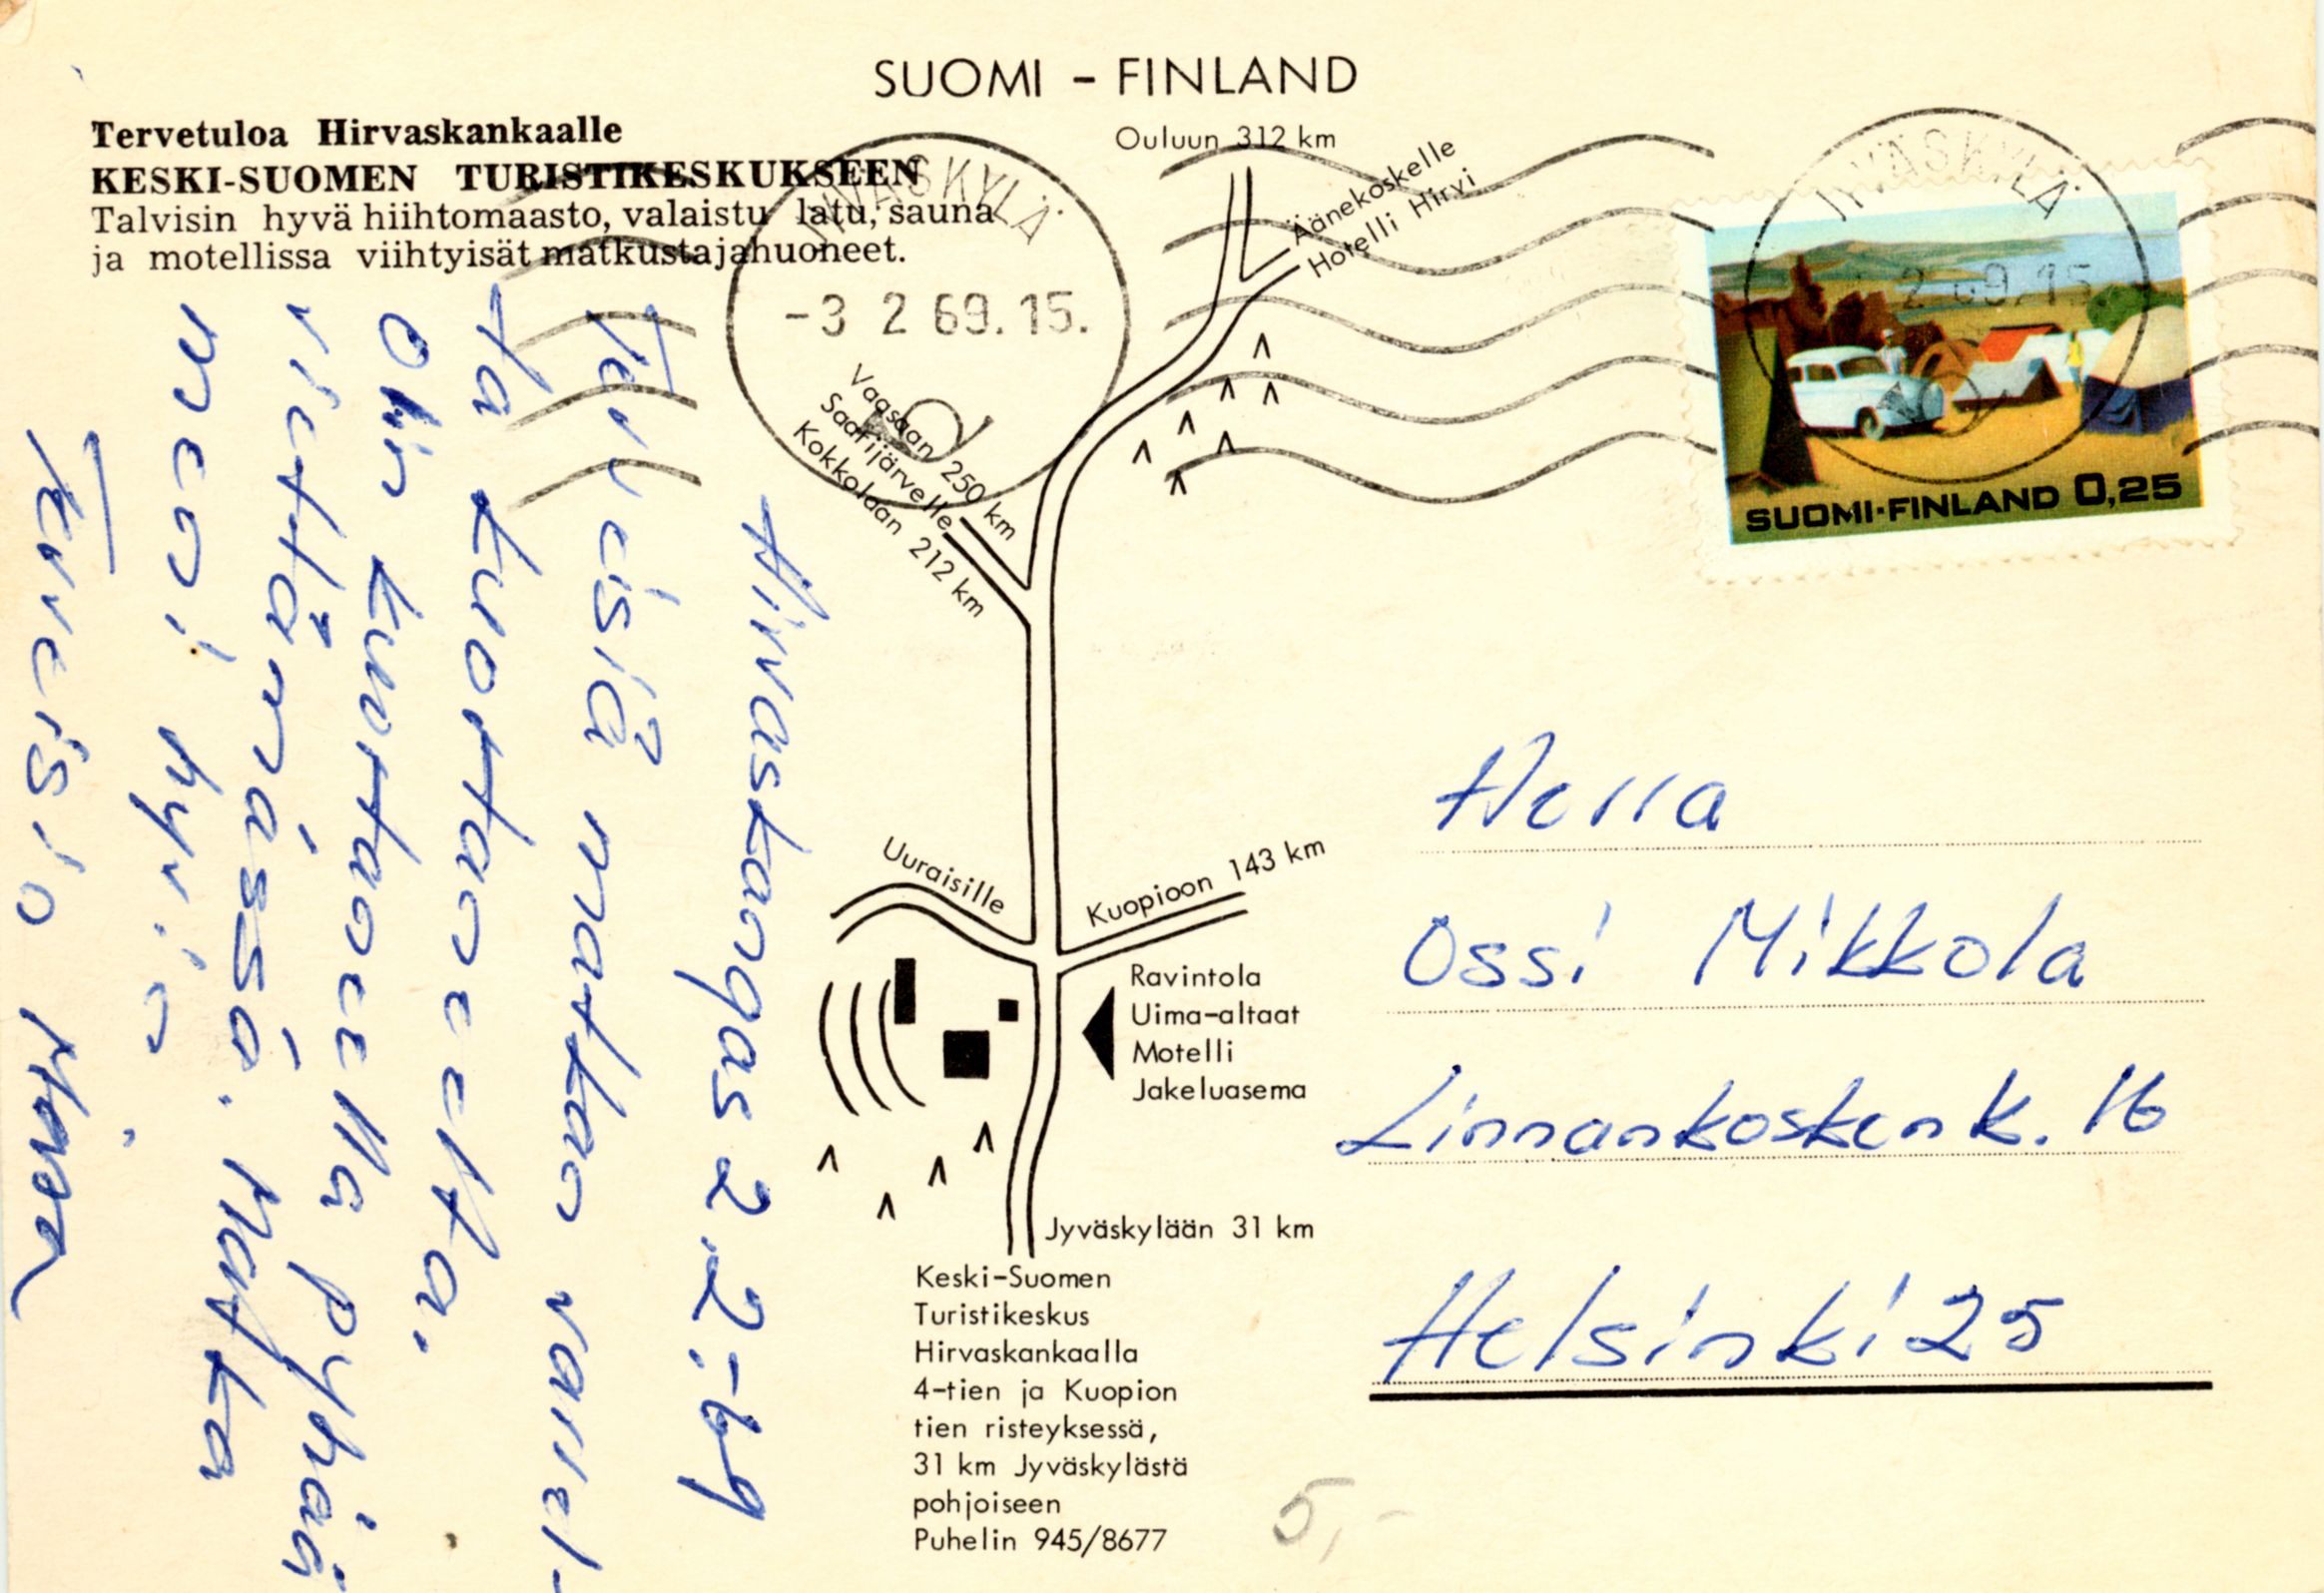 SUOMI – FINLAND
Tervetuloa Hirvaskankaalle
KESKI-SUOMEN TURISTIKESKUKSEEN
Talvisin hyvä hiihtomaasto, valaistu latu, sauna
ja motellissa viihtyisät matkustajahuoneet.
JYVÄSKYLÄ
-3 2 69.15.
Ouluun 312 km
Äänekoskelle
Hotelli Hirvi
Vaasaan 250 km
Saarijärvelle
Kokkolaan 212 km
JYVÄSKYLÄ
2 69.15
SUOMI·FINLAND 0,25
Uuraisille
Kuopioon 143 km
Ravintola
Uima-altaat
Motelli
Jakeluasema
Jyväskylään 31 km
Keski-Suomen
Turistikeskus
Hirvaskankaalla
4-tien ja Kuopion
tien risteyksessä,
31 km Jyväskylästä
pohjoiseen
Puhelin 945/8677
5,-
Hirvaskangas 2.2.-69
Terveisiä matkan varrel-
ta Kuortaneelta.
Olin Kuortaneella pyhää
viettämässä. Matka
meni hyvin.
Terveisin
Herra
Ossi Mikkola
Linnankoskenk. 16
Helsinki 25